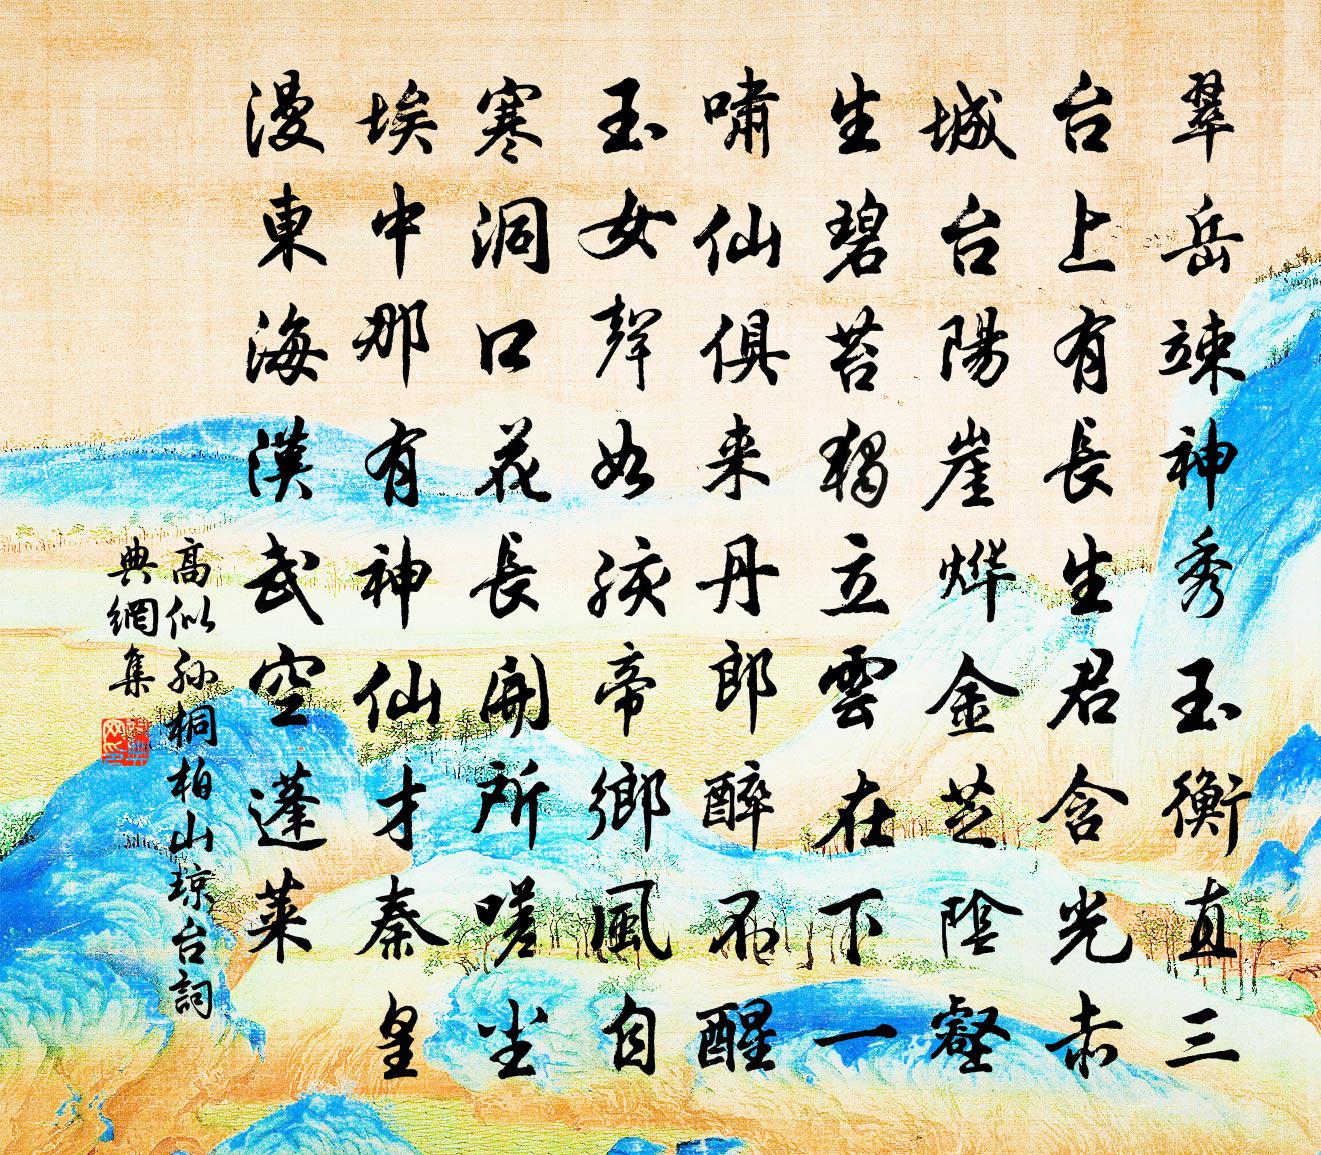 翠岳竦神秀玉衡直三
台上有長生君含光赤
城台陽崖燁金芝陰壑
生碧苔獨立雲在下一
嘯仙俱来丹郎醉不醒
玉女聲如孩帝鄉風自
寒洞口花長開所嗟尘
埃中那有神仙才秦皇
漫東海漢武空蓬萊
高似孙桐柏山琼台詞
典網集